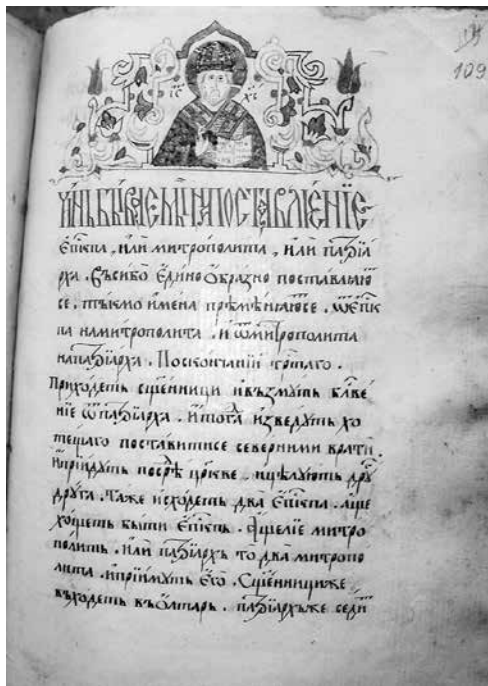 109
ІС ХС
ЧИНЬ БЫВАЕМЫ НА ПОСТАВЛЕНІЕ
єпⷭкпа, или митрополита, или патріа
рха. Въси бо єдино ѡбразно поставлⷶю
се, тькмо имена прѣмѣнюю се. ѿ єпⷭк
па на митрополита. и ѿ митрополита
на патріарха. По скончаніи трⷭтаго.
Приходеть сщ҃енници и възмуть блⷭве
ніе ѿ патріарха. и тогⷣа изведуть хо
тещаго поставитисе северними врати.
и пріидуть посрⷣѣ црк҃ве. и цѣлують дрꙋгь
дрꙋга. Таже исходеть два єпⷭкпа. аще
хощеть быти єпⷭкпь. аще ли є митро
полить, или патріархь то два митропо
лита. и пріимуть его. Сщ҃енници же
въходеть въ ѡлтарь. патріархь же седи